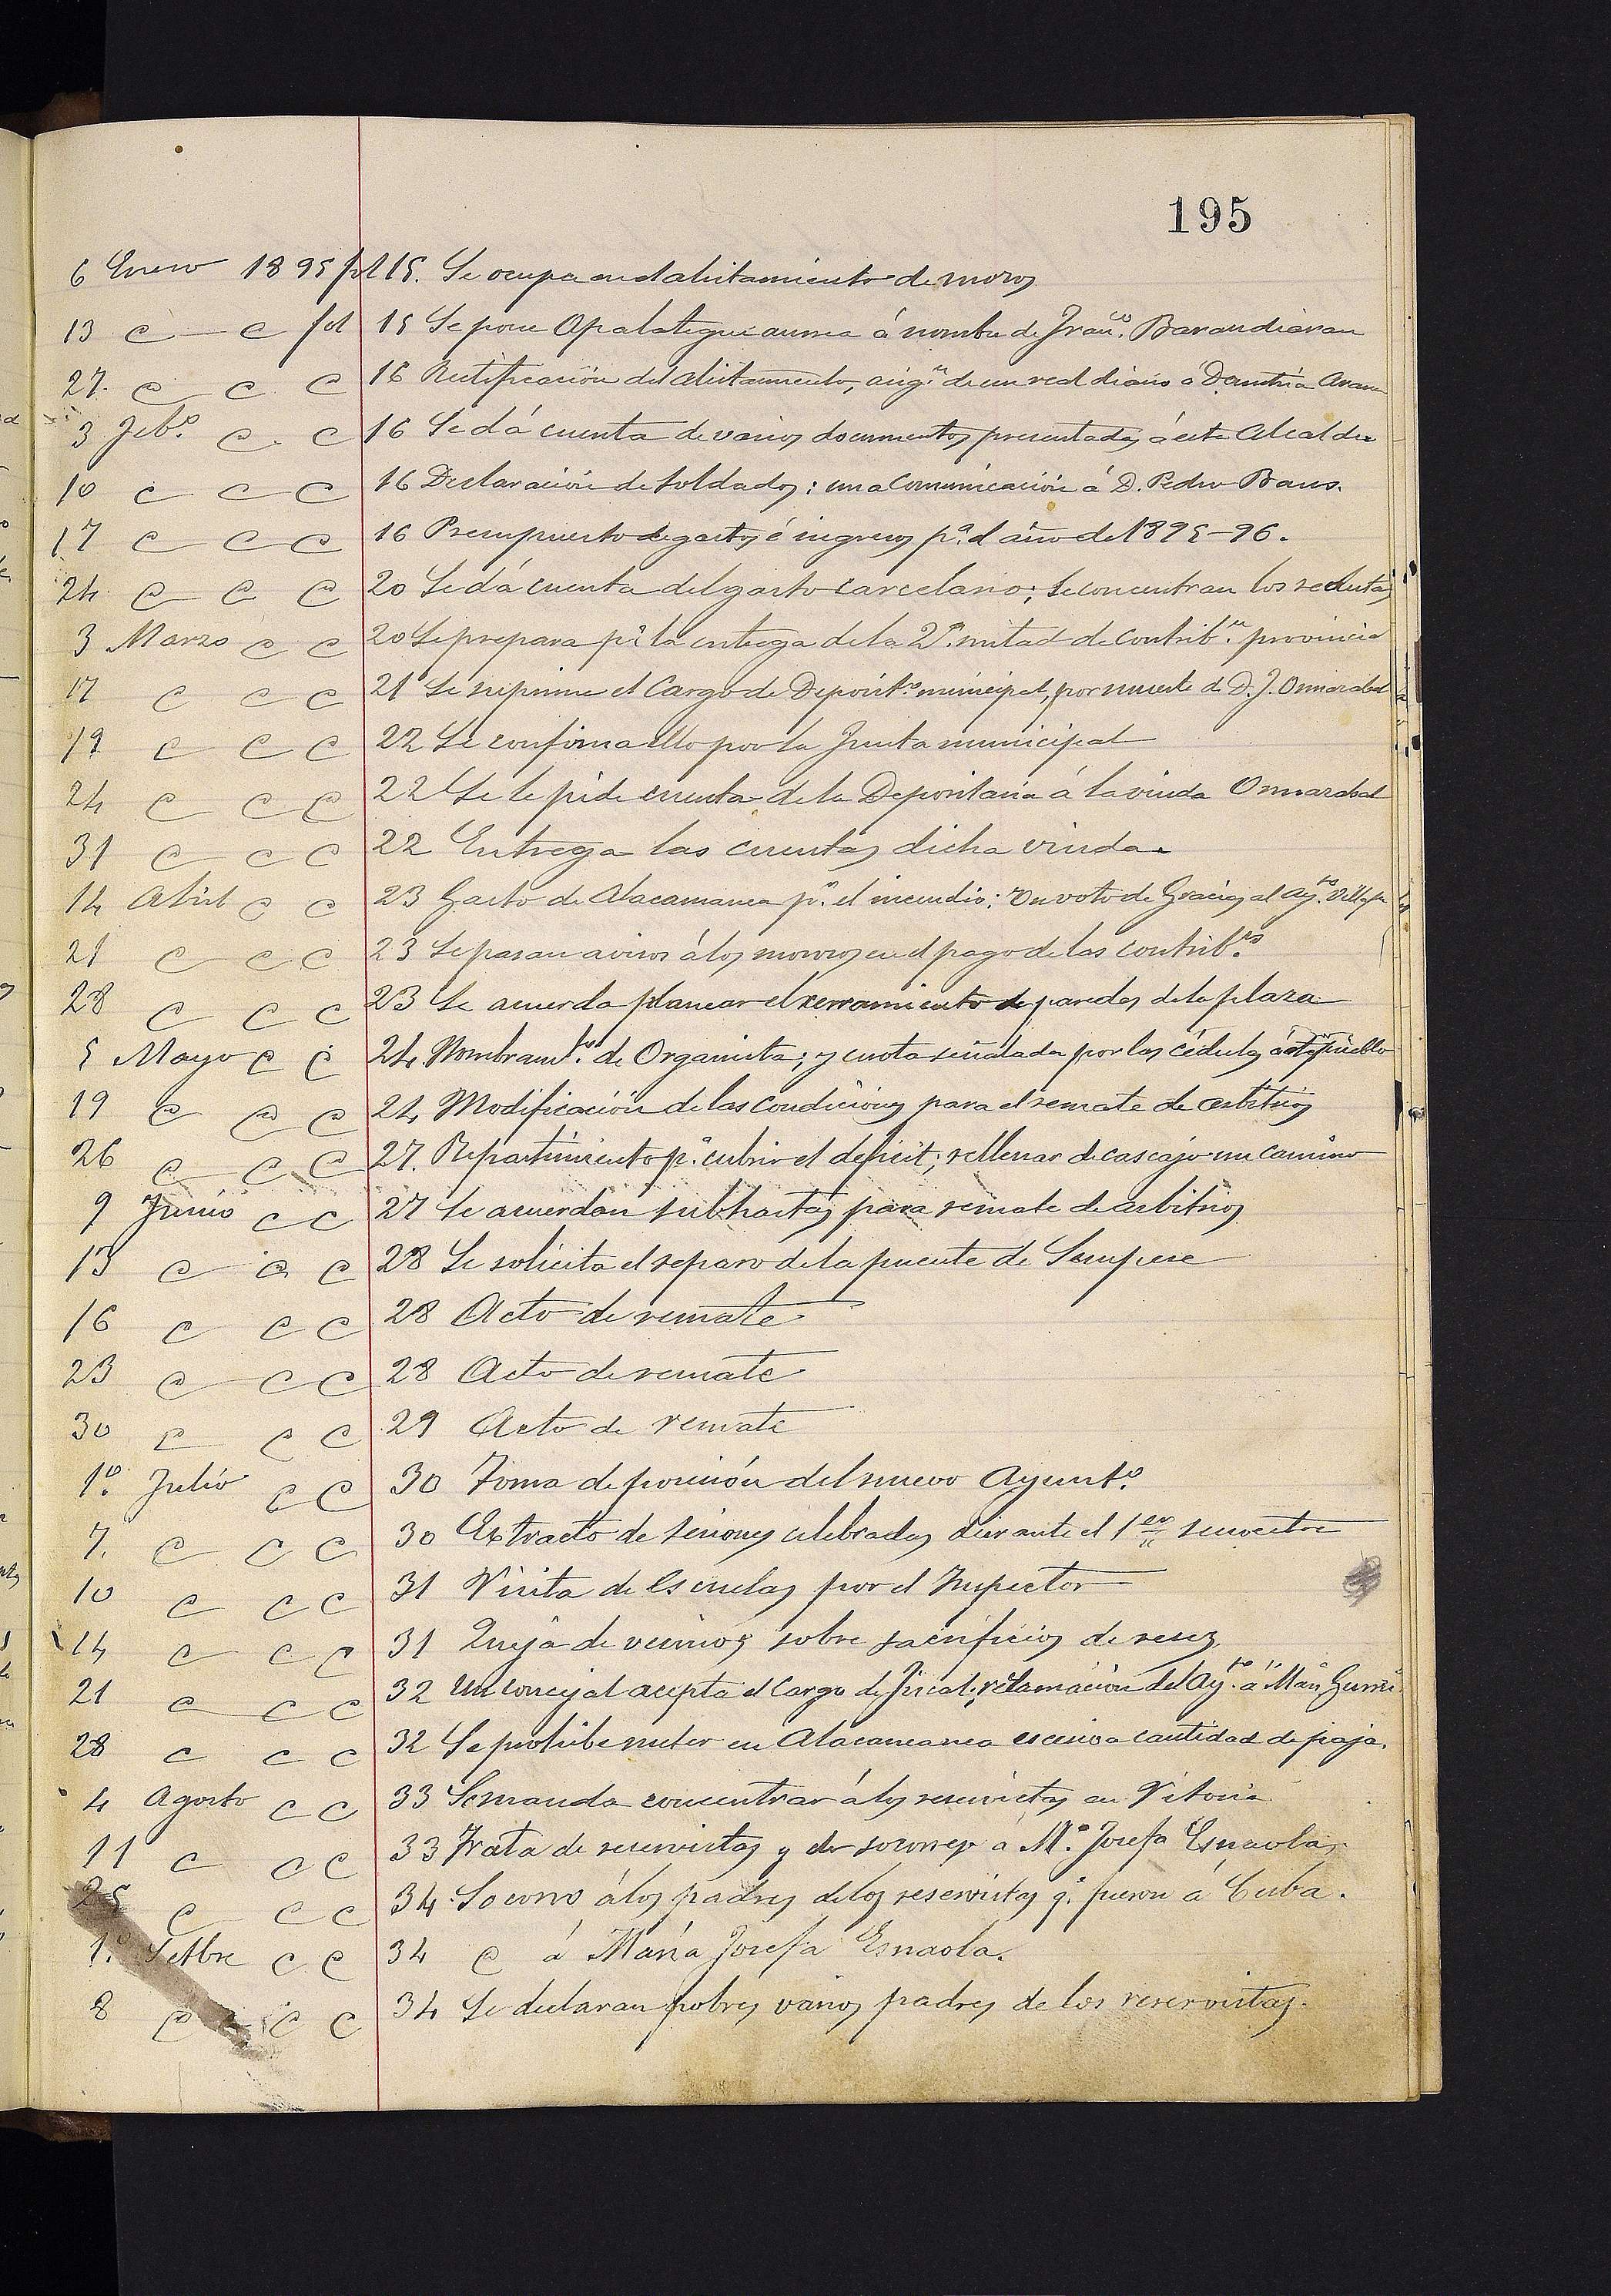 195
6 Enero 1895 fol 15. Se ocupa en el alistamiento de mozos
13 " " fol 15 Se pone Apalategui aurrea á nombre de Fran.co Barandiaran
27. " " " 16 Rectificación del alistamiento, asig.n de un real diario á Demetria Aram
3 Feb.o " " 16 Se dá cuenta de varios documentos presentados á este Alcalde
10 " " " 16 Declaración de soldados; una Comunicación á D. Pedro Baus.
17 " " " 16 Presupuesto de gastos é ingresos p.a el año de 1895-96.
24 " " " 20 Se dá cuenta del gasto carcelario; Se concentran los reclutas
3 Marzo " " 20 Se prepara p.a la entrega de la 2.a mitad de Contrib.n provincia
17 " " " 21 Se suprime el Cargo de Deposit.o municipal, por muerte de D. J. Ormazabal
19 " " " 22 Se confirma ello por la Junta municipal
24 " " " 22 Se le pide cuenta de la Depositaria á la viuda Ormazabal
31 " " " 22 Entrega las cuentas dicha viuda
14 Abril " " 23 Gasto de Alacamanea p.r el incendio; Un voto de Gracias al Ay.to Villafra
21 " " " 23 Se pasan avisos á los morosos en el pago de las contrib.es
28 " " " 23 Se acuerda planear el cerramiento de paredes de la plaza
5 Mayo " " 24 Nombram.to de Organista; y cuota señalada por las cédulas á este pueblo
19 " " " 24 Modificación de las condiciones para el remate de arbitrios
26 " " " 27. Repartimiento p.a cubrir el deficit; rellenar de cascajo un camino
9 Junio " " 27 Se acuerdan subhastas para remate de arbitrios
13 " " " 28 Se solicita el reparo de la puente de Sempere
16 " " " 28 Acto de remate
23 " " " 28 Acto de remate
30 " " " 29 Acto de remate
1.o Julio " " 30 Toma de posesión del nuevo Ayunt.o
7. " " " 30 Extracto de sesiones celebradas durante el 1er semestre
10 " " " 31 Visita de Escuelas por el Inspector
14 " " " 31 Queja de vecinos sobre sacrificios de reses
21 " " " 32 Un concejal acepta el Cargo de Fiscal; reclamación del Ay.to á Man.
28 " " " 32 Se prohibe meter en Alacamanea escesiva cantidad de paja.
4 Agosto " " 33 Se manda concentrar á los reservistas en Vitoria
11 " " " 33 Trata de reservistas y de socorrer á M.a Josefa Esnaola
25 " " " 34 Socorro á los padres de los reservistas q.e fueron á Cuba.
1.o Setbre " " 34 " á Maria Josefa Esnaola.
8 " " " 34 Se declaran pobres varios padres de los reservistas.